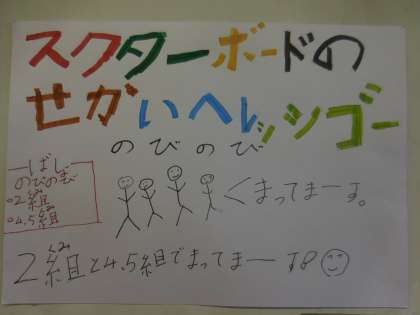 スクターボードの
せかいへレッツゴー
のびのび
ばしょ
のびのび
・2組
・4,5組
まってまーす。
2組と4.5組でまってまーす8
くみ